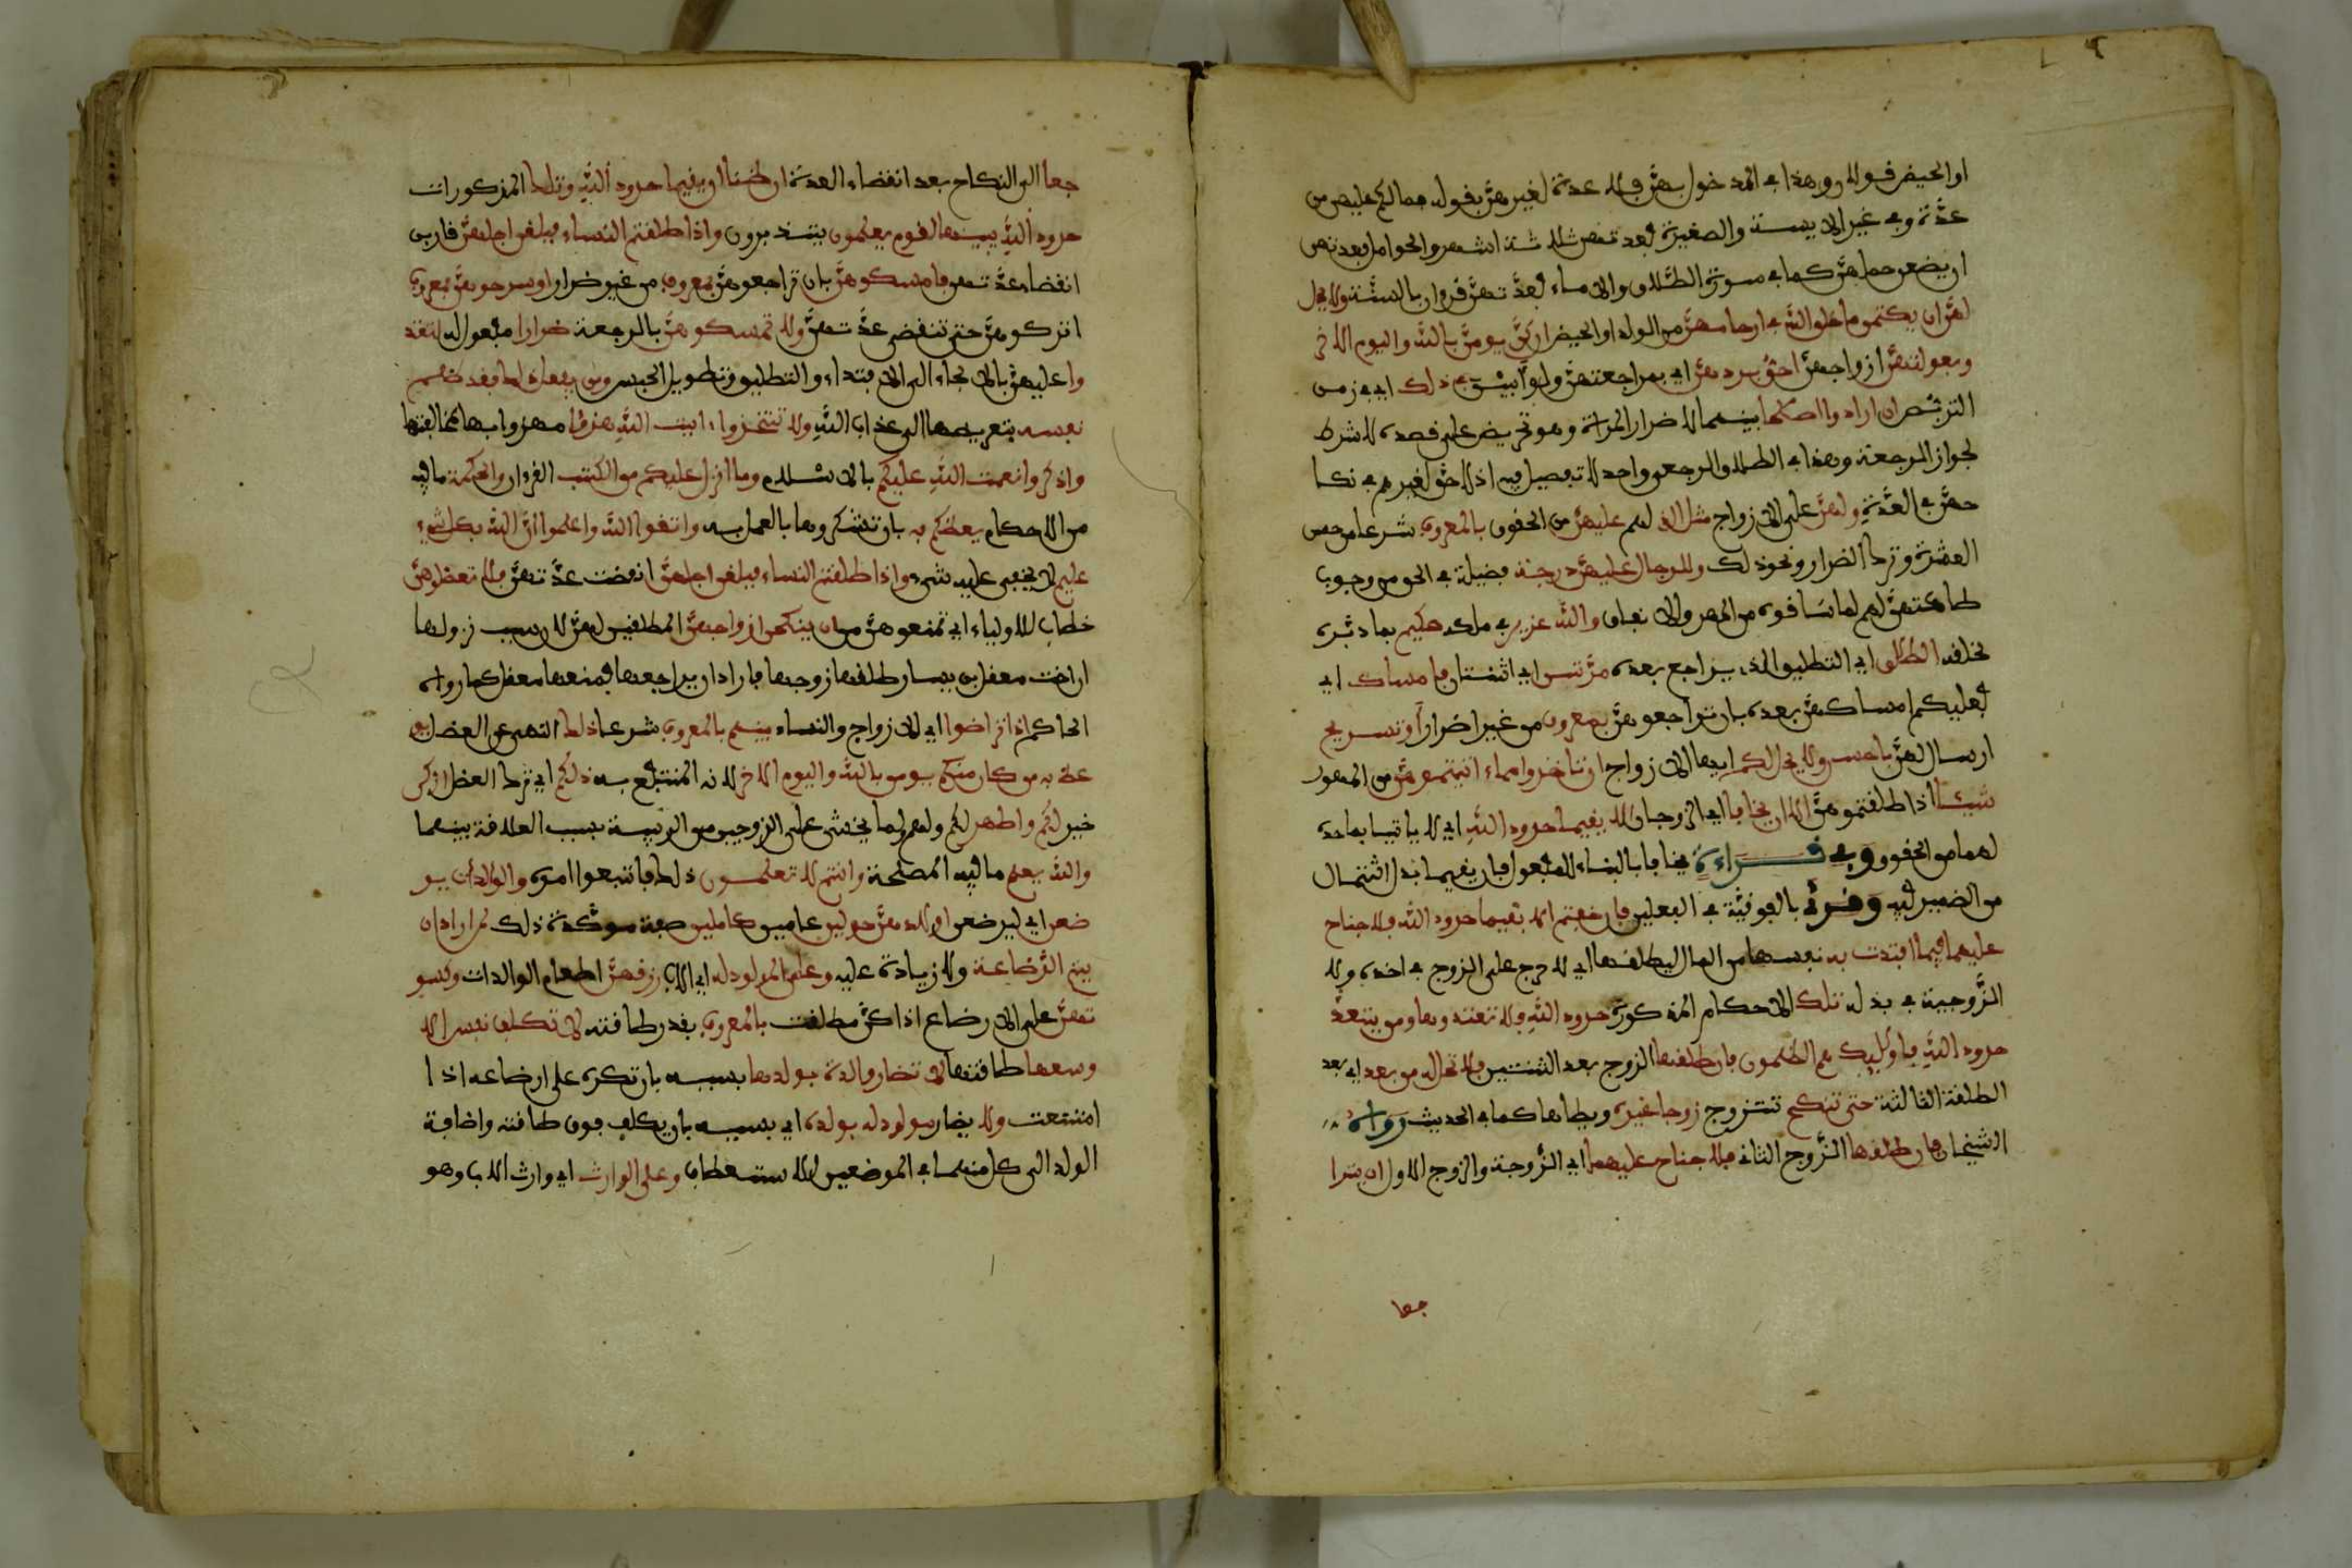 او الحيض قولان وهذا في المدخول بهن فلا عدة لغيرهن بقوله فما لكم عليهن من
عدة وفي غير الايسة والصغيرة فعدتهن ثلاثة اشهر والحوامل فعدتهن
ان يضعن حملهن كما في سورة الطلاق والاماء فعدتهن قرءان بالسنة ولا يحل
لهن ان يكتمن ما خلق الله في ارحامهن من الولد او الحيض ان كن يومن بالله واليوم الاخر
وبعولتهن ازواجهن احق بردهن اي بمراجعتهن ولو ابين في ذلك اي في زمن
التربص ان ارادوا اصلحا بينهما لا ضرار المراة وهو تحريض على قصده لا شرط
لجواز الرجعة وهذا في الطلاق الرجعي واحد لا تفضيل فيه اذ لا حق لغيرهم في نكا
حهن في العدة ولهن على الازواج مثل الذي لهم عليهن من الحقوق بالمعروف شرعا من حسن
العشرة وترك الضرار ونحو ذلك وللرجال عليهن درجة فضيلة في الحق من وجوب
طاعتهن لهم لما ساقوه من المهر والانفاق والله عزيز في ملكه حكيم بما دبره
لخلقه الطلاق اي التطليق الذي يراجع بعده مرتن اي اثنتان فامساك اي
فعليكم امساكهن بعده بان تراجعوهن بمعروف من غير اضرار او تسريح
ارسال لهن باحسن ولا يحل لكم ايها الازواج ان تاخذوا مما ءاتيتموهن من المهور
شيئا اذا طلقتموهن الا ان يخافا اي الزوجان الا يقيما حدود الله اي لا ياتيا بما حده
لهما من الحقوق وفي قراءة يخافا بالبناء للمفعول فان يقيما بدل اشتمال
من الضمير فيه وقرئ بالفوقية في الفعلين فان خفتم الا يقيما حدود الله فلا جناح
عليهما فيما افتدت به نفسها من المال ليطلقها اي لا حرج على الزوج في اخذه ولا
الزوجة في بذله تلك الاحكام المذكورة حدود الله فلا تعتدوها ومن يتعد
حدود الله فاوليك هم الظلمون فان طلقها الزوج بعد الثنتين فلا تحل له من بعد اي بعد
الطلقة الثالثة حتى تنكح تتزوج زوجا غيره ويطاها كما في الحديث رواه
الشيخان فان طلقها الزوج الثاني فلا جناح عليهما اي الزوجة والزوج الاول ان يترا
جعا
جعا الى النكاح بعد انقضاء العدة ان ظنا ان يقيما حدود الله وتلك المذكورات
حدود الله يبينها لقوم يعلمون يتدبرون واذا طلقتم النساء فبلغن اجلهن قاربن
انقضاء عدتهن فامسكوهن بان تراجعوهن بمعروف من غير ضرار او سرحوهن بمعروف
اتركوهن حتى تنقضي عدتهن ولا تمسكوهن بالرجعة ضرارا مفعول له لتعتد
وا عليهن بالالجاء الى الافتداء والتطليق وتطويل الحبس ومن يفعل ذلك فقد ظلم
نفسه بتعريضها الى عذاب الله ولا تتخذوا ءايت الله هزؤا مهزوا بها بمخالفتها
واذكروا نعمت الله عليكم بالاسلام وما انزل عليكم من الكتب القرءان والحكمة ما فيه
من الاحكام يعظكم به بان تشكروها بالعمل به واتقوا الله واعلموا ان الله بكل شيء
عليم لا يخفى عليه شيء واذا طلقتم النساء فبلغن اجلهن انقضت عدتهن فلا تعضلوهن
خطاب للاولياء اي تمنعوهن من ان ينكحن ازواجهن المطلقين لهن لان سبب نزولها
ان اخت معقل بن يسار طلقها زوجها فاراد ان يراجعها فمنعها معقل كما رواه
الحاكم اذا تراضوا اي الازواج والنساء بينهم بالمعروف شرعا ذلك النهي عن العضل يو
عظ به من كان منكم يومن بالله واليوم الاخر لانه المنتفع به ذلكم اي ترك العضل ازكى
خير لكم واطهر لكم ولهم لما يخشى على الزوجين من الريبة بسبب العلاقة بينهما
والله يعلم ما فيه المصلحة وانتم لا تعلمون ذلك فاتبعوا امره والوالدات ير
ضعن اي ليرضعن اولادهن حولين عامين كاملين صفة موكدة ذلك لمن اراد ان
يتم الرضاعة ولا زيادة عليه وعلى المولود له اي الاب رزقهن اطعام الوالدات وكسو
تهن على الارضاع اذا كن مطلقت بالمعروف بقدر طاقته لا تكلف نفس الا
وسعها طاقتها لا تضار والدة بولدها بسببه بان تكره على ارضاعه اذا
امتنعت ولا يضار مولود له بولده اي بسببه بان يكلف فوق طاقته واضافة
الولد الى كل منهما في الموضعين للاستعطاف وعلى الوارث اي وارث الاب وهو